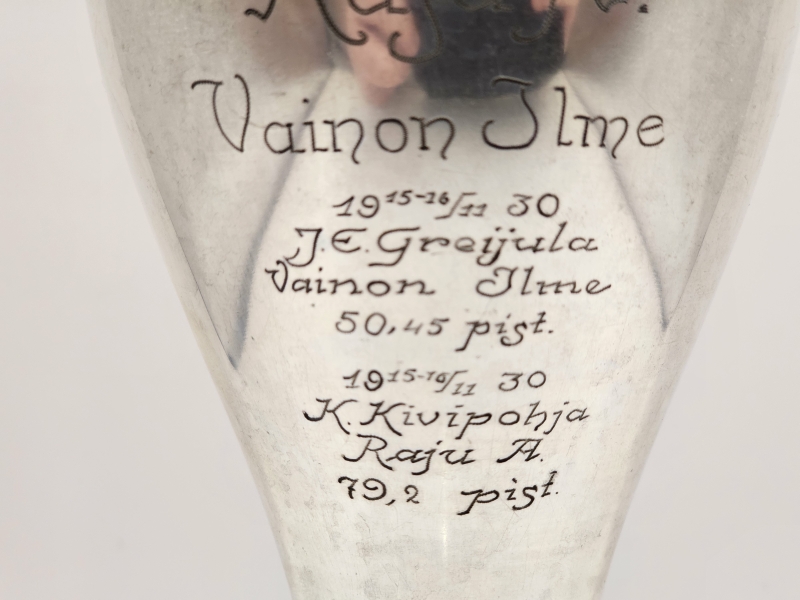 Raju A.
Vainon Ilme
19 15-16/11 30
J.E.Greijula
Vainon Ilme
50,45 pist.
19 15-16/11 30
K.Kivipohja
Raju A.
79,2 pist.